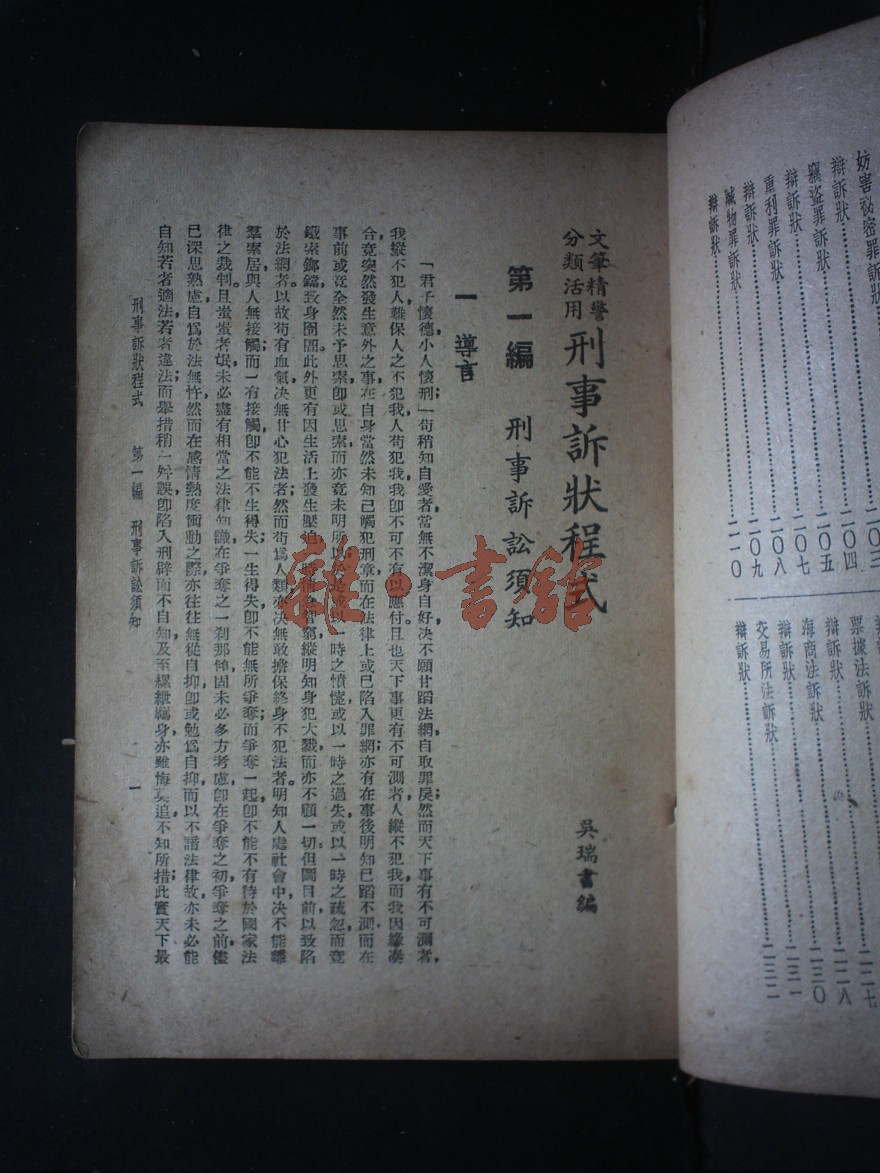 妨害祕密罪訴狀
辯訴狀…………二〇四
竊盜罪訴狀…………二〇五
辯訴狀…………二〇七
重利罪訴狀…………二〇八
辯訴狀…………二〇九
贓物罪訴狀
辯訴狀…………二一〇
票據法訴狀
辯訴狀…………二二八
海商法訴狀
辯訴狀
交易所法訴狀
辯訴狀
文筆精警
分類活用
刑事訴狀程式
吳瑞書編
第一編 刑事訴訟須知
一 導言
「君子懷德小人懷刑」苟稍知自愛者當無不潔身自好決不願甘蹈法網自取罪戾然而天下事有不可測者
我縱不犯人難保人之不犯我人苟犯我我卽不可不有以應付且也天下事更有不可測者人縱不犯我而我因緣湊
合竟突然發生意外之事在自身當然未知已觸犯刑章而在法律上或已陷入罪網亦有在事後明知已蹈不測而在
事前或竟全然未予思索卽或思索而亦竟未明所以於是或以一時之憤懥或以一時之過失或以一時之疏忽而竟
鐵索鋃鐺致身囹圄此外更有因生活上發生壓迫智窮縱明知身犯大戮而亦不顧一切但圖目前以致陷
於法網者以故苟有血氣決無甘心犯法者然而苟爲人類亦決無敢擔保終身不犯法者明知人處社會中決不能離
羣索居與人無接觸而一有接觸卽不能不生得失一生得失卽不能無所爭奪而爭奪一起卽不能不有待於國家法
律之裁判且蚩蚩者氓未必盡有相當之法律知識在爭奪之一剎那傾固未必多方考慮卽在爭奪之初爭奪之前儘
已深思熟慮自爲於法無忤然而在感情熱度衝動之際亦往往無從自抑卽或勉爲自抑而以不諳法律故亦未必能
自知若者適法若者違法而舉措稍一舛誤卽陷入刑辟而不自知及至縲紲羈身亦雖悔莫追不知所措此實天下最
刑事訴狀程式 第一編 刑事訴訟須知
一
雜·書館